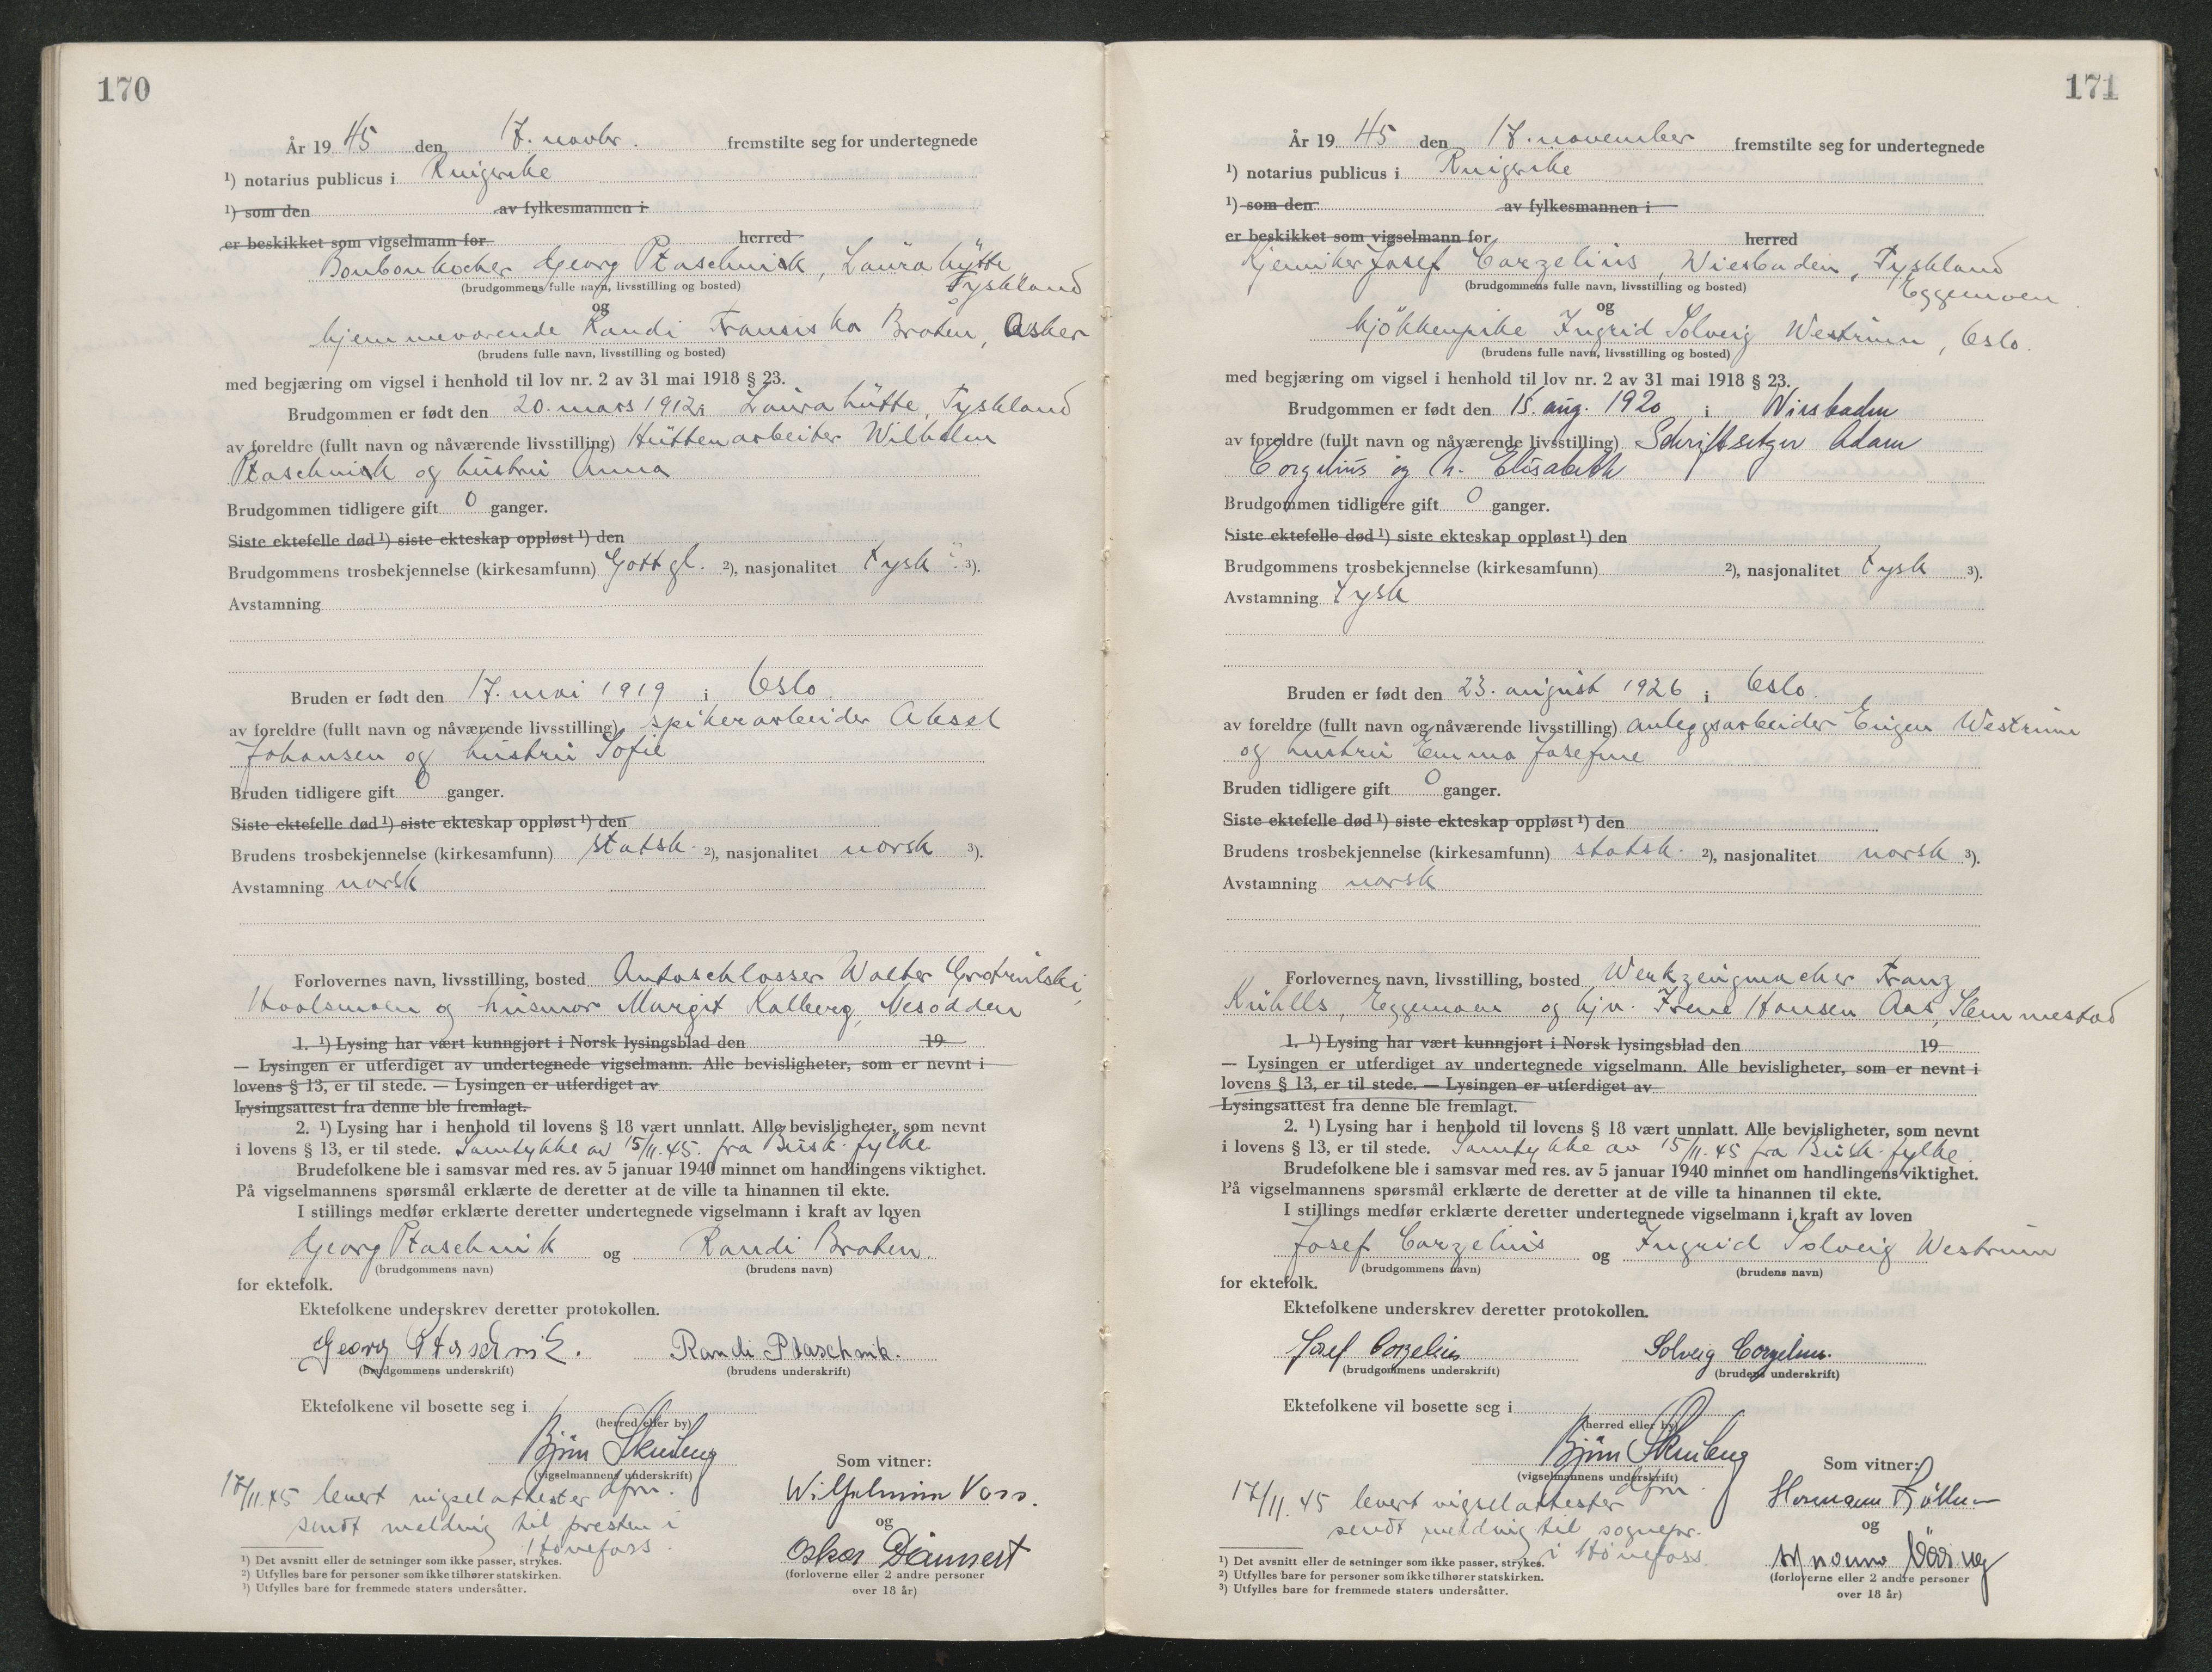 170
År 19 45 den 17. novbr. fremstilte seg for undertegnede
1) notarius publicus i Ringerike
1) som den av fylkesmannen i
er beskikket som vigselmann for herred
Bonbonkocher Georg Ptaschnik, Laurahütte
Tyskland
(brudgommens fulle navn, livsstilling og bosted)
og
hjemmeværende Randi Fransiska Braten, Asker
(brudens fulle navn, livsstilling og bosted)
med begjæring om vigsel i henhold til lov nr. 2 av 31 mai 1918 § 23.
Brudgommen er født den 20. mars 1912 i Laurahütte, Tyskland
av foreldre (fullt navn og nåværende livsstilling) Hüttenarbeiter Wilhelm
Ptaschnik og hustru Anna
Brudgommen tidligere gift 0 ganger.
Siste ektefelle død 1) siste ekteskap oppløst 1) den
Brudgommens trosbekjennelse (kirkesamfunn) Gottgl. 2), nasjonalitet tysk 3).
Avstamning
Bruden er født den 17. mai 1919 i Oslo.
av foreldre (fullt navn og nåværende livsstilling) spikerarbeider Aksel
Johansen og hustru Sofie
Bruden tidligere gift 0 ganger.
Siste ektefelle død 1) siste ekteskap oppløst 1) den
Brudens trosbekjennelse (kirkesamfunn) statsk. 2), nasjonalitet norsk 3).
Avstamning norsk
Forlovernes navn, livsstilling, bosted Autoschlosser Walter
og husmor Margit Kalberg, Nesodden
1. 1) Lysing har vært kunngjort i Norsk lysingsblad den 19
— Lysingen er utferdiget av undertegnede vigselmann. Alle bevisligheter, som er nevnt i
lovens § 13, er til stede. — Lysingen er utferdiget av
Lysingsattest fra denne ble fremlagt.
2. 1) Lysing har i henhold til lovens § 18 vært unnlatt. Alle bevisligheter, som nevnt
i lovens § 13, er til stede. Samtykke av 15/11.45. fra Busk. fylke
Brudefolkene ble i samsvar med res. av 5 januar 1940 minnet om handlingens viktighet.
På vigselmannens spørsmål erklærte de deretter at de ville ta hinannen til ekte.
I stillings medfør erklærte deretter undertegnede vigselmann i kraft av loven
Georg Ptaschnik og Randi Braten
(brudgommens navn) (brudens navn)
for ektefolk.
Ektefolkene underskrev deretter protokollen.
Georg Ptaschnik. Randi Ptaschnik.
(brudgommens underskrift) (brudens underskrift)
Ektefolkene vil bosette seg i
(herred eller by)
Bjørn Skuleng
(vigselmannens underskrift)
dfm.
Som vitner:
17/11.45 levert vigselattester
sendt melding til presten i
Hønefoss.
Wilhelmine Voss.
og
Oskar Dannert
(forloverne eller 2 andre personer
over 18 år)
1) Det avsnitt eller de setninger som ikke passer, strykes.
2) Utfylles bare for personer som ikke tilhører statskirken.
3) Utfylles bare for fremmede staters undersåtter.
171
År 19 45 den 17. november fremstilte seg for undertegnede
1) notarius publicus i Ringerike
1) som den av fylkesmannen i
er beskikket som vigselmann for herred
Kjemiker Josef Corzelius, Wiesbaden, Tyskland
Eggemoen.
(brudgommens fulle navn, livsstilling og bosted)
og
kjökkenpike Ingrid Solveig Westrum, Oslo.
(brudens fulle navn, livsstilling og bosted)
med begjæring om vigsel i henhold til lov nr. 2 av 31 mai 1918 § 23.
Brudgommen er født den 15. aug. 1920 i Wiesbaden
av foreldre (fullt navn og nåværende livsstilling) Schriftsetzer Adam
Corzelius og h. Elisabeth
Brudgommen tidligere gift 0 ganger.
Siste ektefelle død 1) siste ekteskap oppløst 1) den
Brudgommens trosbekjennelse (kirkesamfunn) 2), nasjonalitet tysk 3).
Avstamning tysk
Bruden er født den 23. august 1926 i Oslo.
av foreldre (fullt navn og nåværende livsstilling) anleggsarbeider Eugen Westrum
og hustru Emma Josefine
Bruden tidligere gift 0 ganger.
Siste ektefelle død 1) siste ekteskap oppløst 1) den
Brudens trosbekjennelse (kirkesamfunn) statsk. 2), nasjonalitet norsk 3).
Avstamning norsk
Forlovernes navn, livsstilling, bosted Werkzeugmacher Franz
Eggemoen og hjv. Irene Hansen Aas, Slemmestad
1. 1) Lysing har vært kunngjort i Norsk lysingsblad den 19
— Lysingen er utferdiget av undertegnede vigselmann. Alle bevisligheter, som er nevnt i
lovens § 13, er til stede. — Lysingen er utferdiget av
Lysingsattest fra denne ble fremlagt.
2. 1) Lysing har i henhold til lovens § 18 vært unnlatt. Alle bevisligheter, som nevnt
i lovens § 13, er til stede. Samtykke av 15/11.45 fra Busk. fylke.
Brudefolkene ble i samsvar med res. av 5 januar 1940 minnet om handlingens viktighet.
På vigselmannens spørsmål erklærte de deretter at de ville ta hinannen til ekte.
I stillings medfør erklærte deretter undertegnede vigselmann i kraft av loven
Josef Corzelius og Ingrid Solveig Westrum
(brudgommens navn) (brudens navn)
for ektefolk.
Ektefolkene underskrev deretter protokollen.
Josef Corzelius Solveig Corzelius.
(brudgommens underskrift) (brudens underskrift)
Ektefolkene vil bosette seg i
(herred eller by)
Bjørn Skuleng
(vigselmannens underskrift)
dfm.
Som vitner:
17/11.45 levert vigselattester
sendt melding til sognepr.
i Hønefoss.
Hermann
og
(forloverne eller 2 andre personer
over 18 år)
1) Det avsnitt eller de setninger som ikke passer, strykes.
2) Utfylles bare for personer som ikke tilhører statskirken.
3) Utfylles bare for fremmede staters undersåtter.